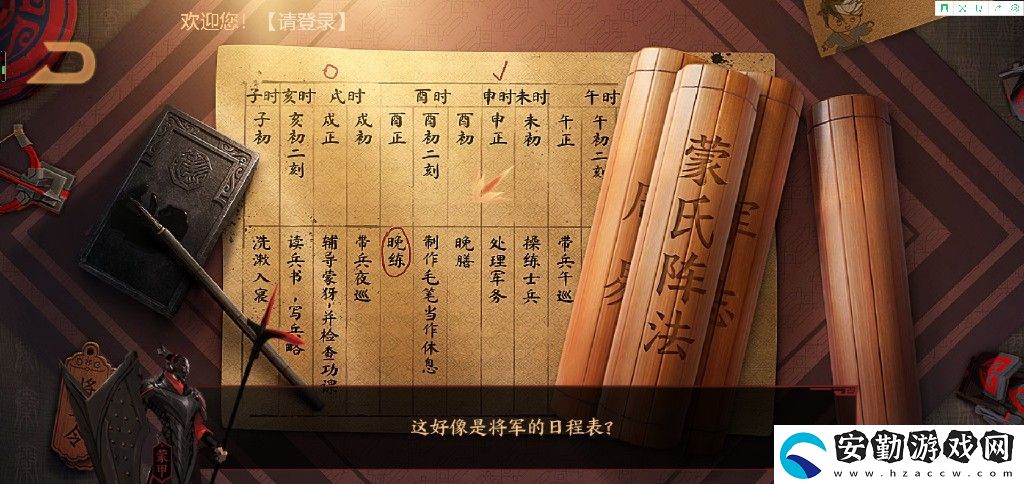 欢迎您！【请登录】
子时 亥时 戌时 酉时 申时 未时 午时
子初 亥初二刻 戌正 戌初 酉正 酉初二刻 酉初 申正 未初 午正 午初二刻
洗漱入寝 读兵书，写兵略 辅导蒙犽，并检查功课 带兵夜巡 晚练 制作毛笔当作休息 晚膳 处理军务 操练士兵 带兵午巡
蒙氏阵法
将令
蒙甲
这好像是将军的日程表？
安勤游戏网
www.hzaccw.com